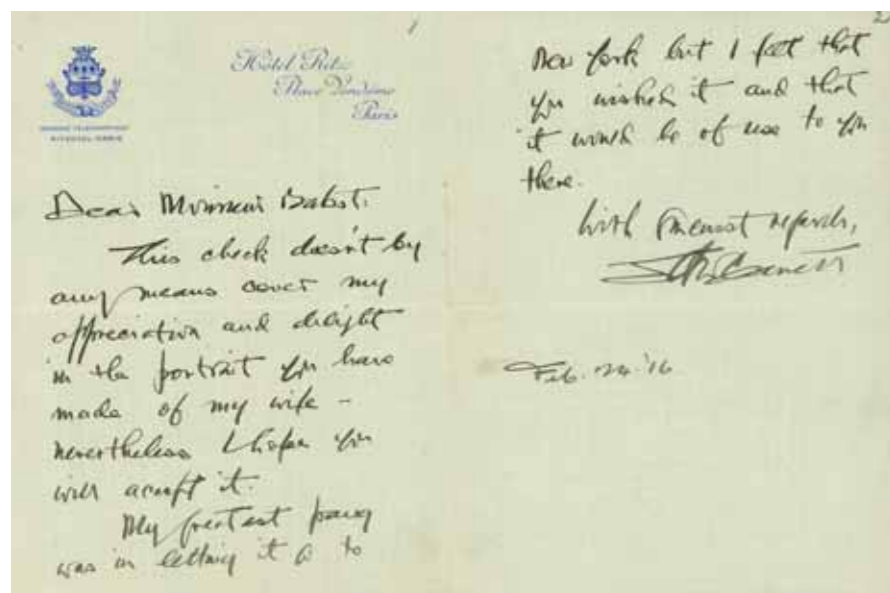 1
Hôtel Ritz
Place Vendôme
Paris
Dear Monsieur Bakst:
This check doesn't by
any means cover my
appreciation and delight
in the portrait you have
made of my wife –
nevertheless I hope you
will accept it.
My greatest pang
was in letting it go to
2
New York but I felt that
you wished it and that
it would be of use to you
there.
With sincerest regards,
Feb. 24. '16